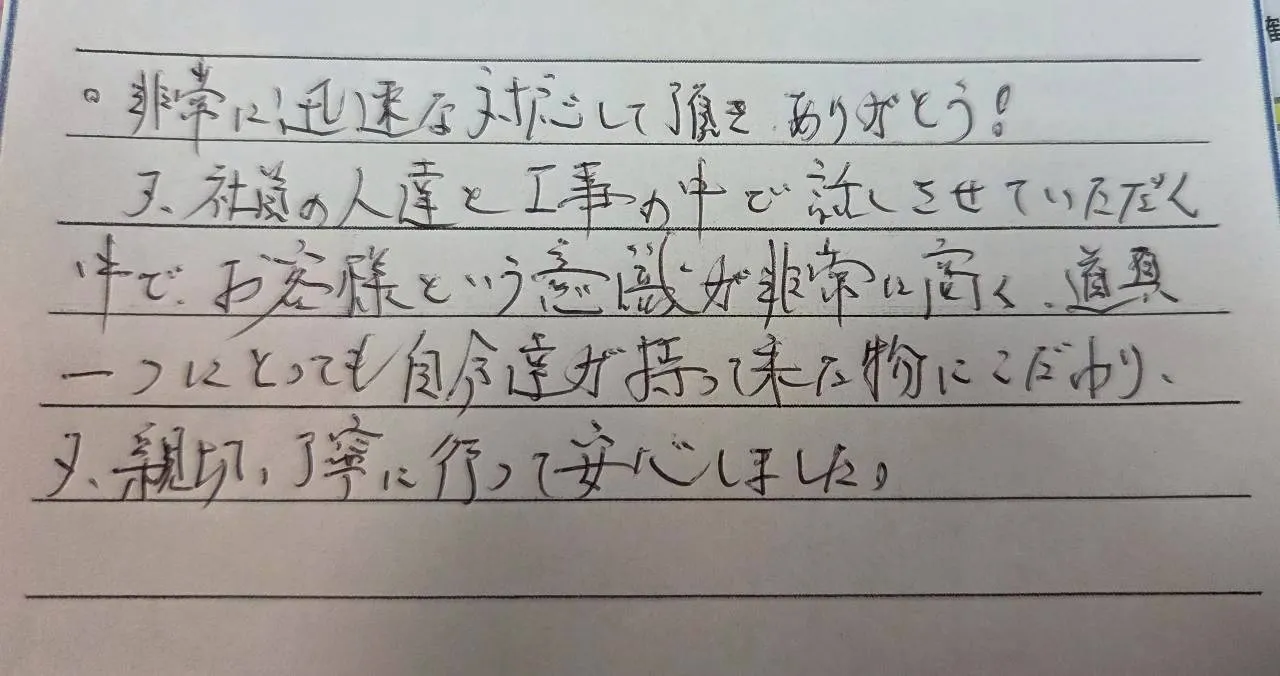 ○ 非常に迅速な対応して頂き、ありがとう!
又、社員の人達と工事の中で話しさせていただく
中で、お客様という意識が非常に高く、道具
一つにとっても自分達が持って来た物にこだわり、
又、親切、丁寧に行って安心しました。